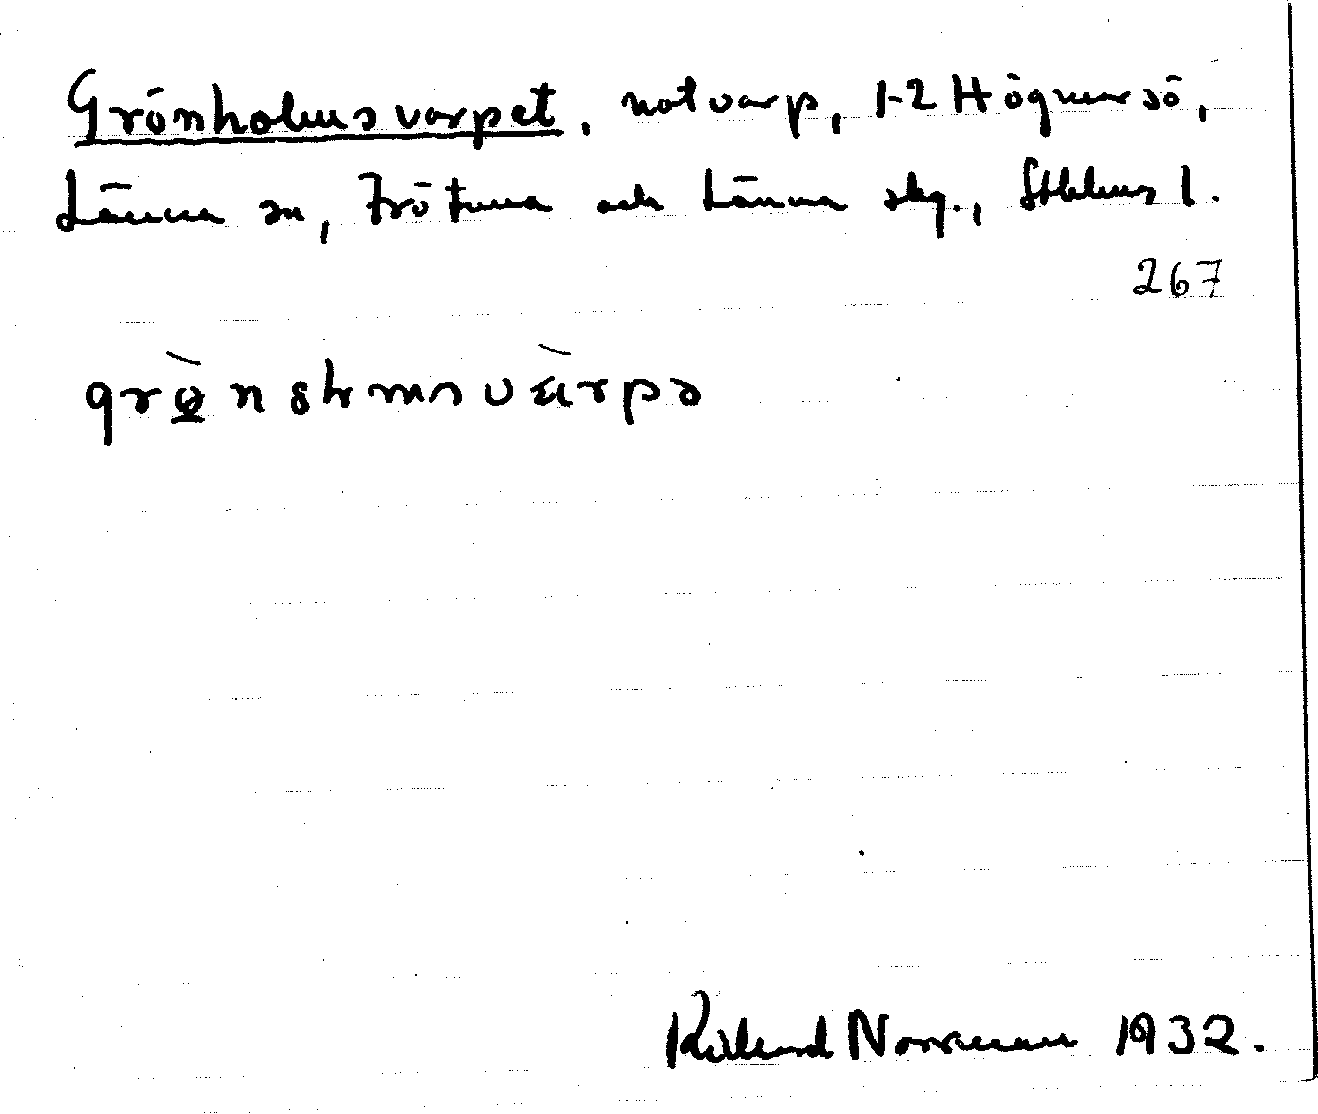 Grönholmsvarpet, notvarp, 1-2 Högmarsö,
Länna sn, Frötuna och Länna skg., Sthlms l.
267
Norrman 1932.